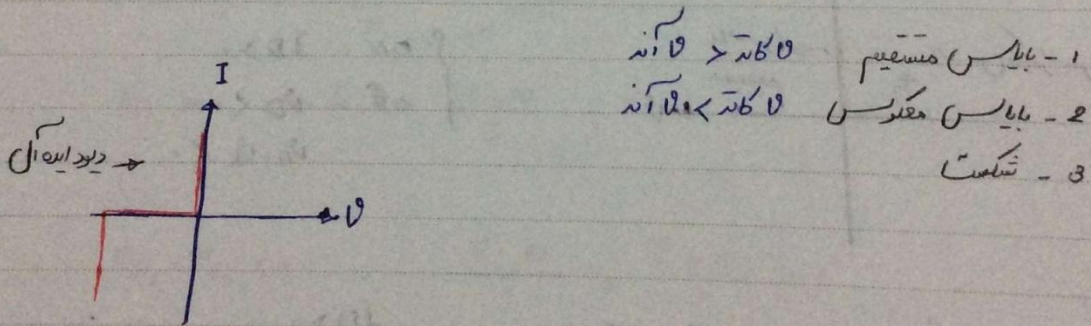 1 - بایاس مستقیم     v کاتد < v آند
2 - بایاس معکوس     v کاتد > v آند
3 - شکست
I
دیود ایده‌آل →
v